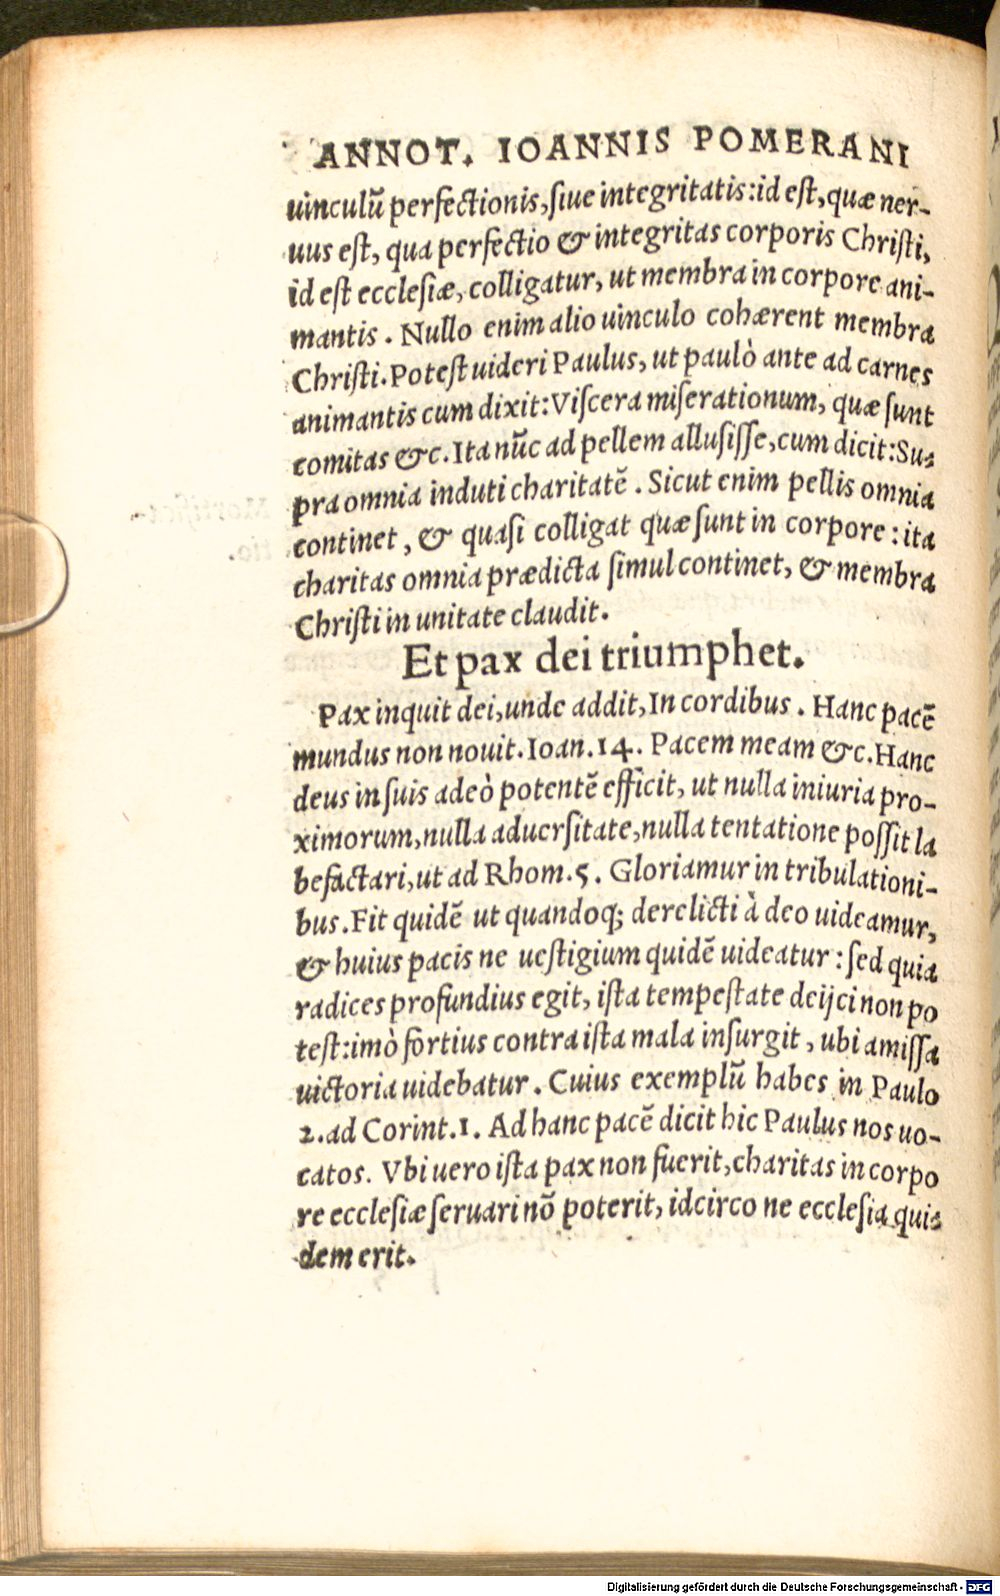 ANNOT. IOANNIS POMERANI
uinculũ perfectionis, siue integritatis: id est, quæ ner-
uus est, qua perfectio & integritas corporis Christi,
id est ecclesiæ, colligatur, ut membra in corpore ani-
mantis. Nullo enim alio uinculo cohærent membra
Christi. Potest uideri Paulus, ut paulò ante ad carnes
animantis cum dixit: Viscera miserationum, quæ sunt
comitas &c. Ita nũc ad pellem allusisse, cum dicit: Su-
pra omnia induti charitatẽ. Sicut enim pellis omnia
continet, & quasi colligat quæ sunt in corpore: ita
charitas omnia prædicta simul continet, & membra
Christi in unitate claudit.
Et pax dei triumphet.
Pax inquit dei, unde addit, In cordibus. Hanc pacẽ
mundus non nouit. Ioan. 14. Pacem meam &c. Hanc
deus in suis adeò potentẽ efficit, ut nulla iniuria pro-
ximorum, nulla aduersitate, nulla tentatione possit la
befactari, ut ad Rhom. 5. Gloriamur in tribulationi-
bus. Fit quidẽ ut quandoq; derelicti à deo uideamur,
& huius pacis ne uestigium quidẽ uideatur: sed quia
radices profundius egit, ista tempestate deijci non po
test: imò fortius contra ista mala insurgit, ubi amissa
uictoria uidebatur. Cuius exemplũ habes in Paulo
2. ad Corint. 1. Ad hanc pacẽ dicit hic Paulus nos uo-
catos. Vbi uero ista pax non fuerit, charitas in corpo
re ecclesiæ seruari nõ poterit, idcirco ne ecclesia qui-
dem erit.
Digitalisierung gefördert durch die Deutsche Forschungsgemeinschaft - DFG